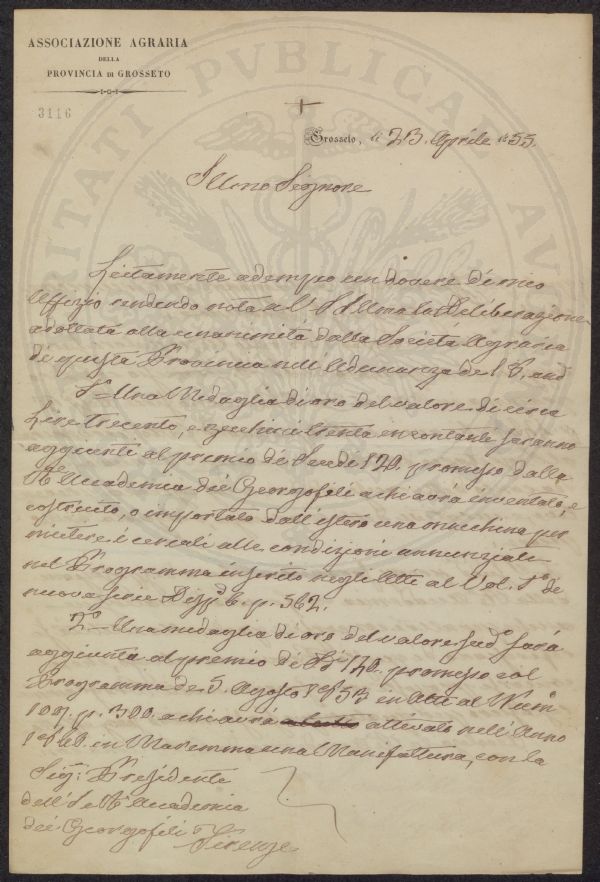 ASSOCIAZIONE AGRARIA
DELLA
PROVINCIA DI GROSSETO
3116
Grosseto, li 23. Aprile 1855.
Illmo Signore
Lietamente adempio un dovere di mio
Uffizio rendendo nota a V. S. Illma la Deliberazione
adottata alla unanimità dalla Società Agraria
di questa Provincia nell'Adunanza de'
1º Una Medaglia di oro del valore di circa
Lire trecento, e zecchini trenta in contante saranno
aggiunti al premio di Scudi 120. promesso dalla
Accademia dei Georgofili a chi avrà inventato, e
costruito, o importato dall'estero una macchina per
mietere i cereali alle condizioni annunziate
nel Programma inserito negli Atti al Vol. 1º di
nuova serie p. 562.
2º Una medaglia di oro del valore sudº sarà
aggiunta al premio di 120. promesso col
Programma de' 5. Agosto 1853 in Atti al Num
p. 300. a chi avrà attivato nell'Anno
in Maremma una Manifattura, con la
Sig: Presidente
dell' Accademia
dei Georgofili Firenze
VERITATI PVBLICAE